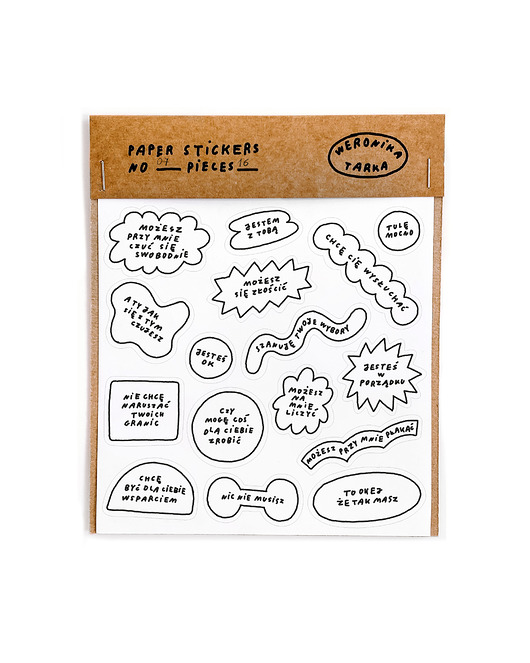 PAPER STICKERS
NO 07 PIECES 16
WERONIKA
TARKA
MOŻESZ
PRZY MNIE
CZUĆ SIĘ
SWOBODNIE
JESTEM
Z TOBĄ
TULĘ
MOCNO
CHCĘ CIĘ WYSŁUCHAĆ
MOŻESZ
SIĘ ZŁOŚCIĆ
A TY JAK
SIĘ Z TYM
CZUJESZ
SZANUJĘ TWOJE WYBORY
JESTEŚ
OK
JESTEŚ
W
PORZĄDKU
NIE CHCĘ
NARUSZAĆ
TWOICH
GRANIC
CZY
MOGĘ COŚ
DLA CIEBIE
ZROBIĆ
MOŻESZ
NA
MNIE
LICZYĆ
MOŻESZ PRZY MNIE PŁAKAĆ
CHCĘ
BYĆ DLA CIEBIE
WSPARCIEM
NIC NIE MUSISZ
TO OKEJ
ŻE TAK MASZ